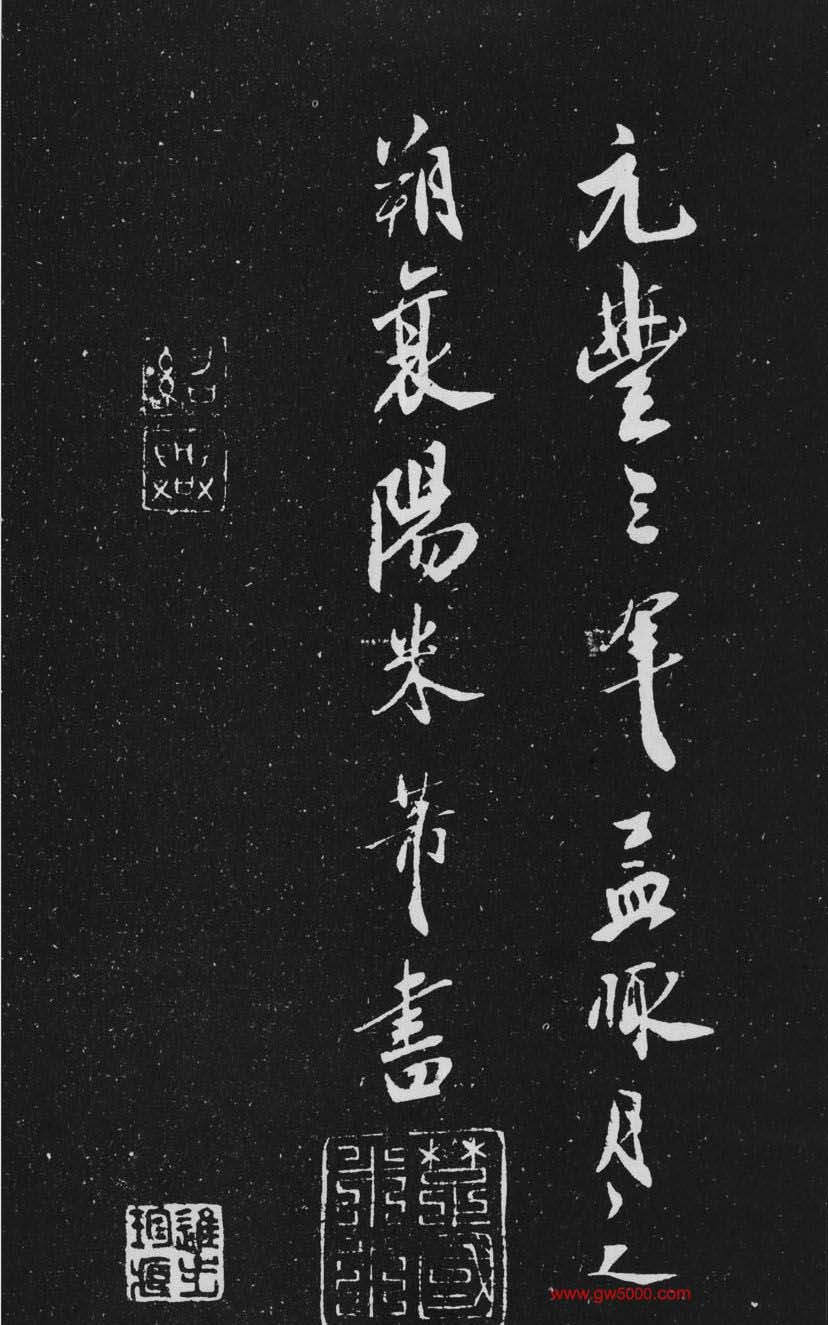 元豐三年孟秋月之
朔襄陽米芾書
www.gw5000.com